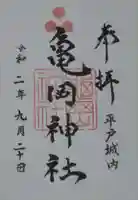 奉拝
平戸城内
亀岡神社
令和二年九月二十日